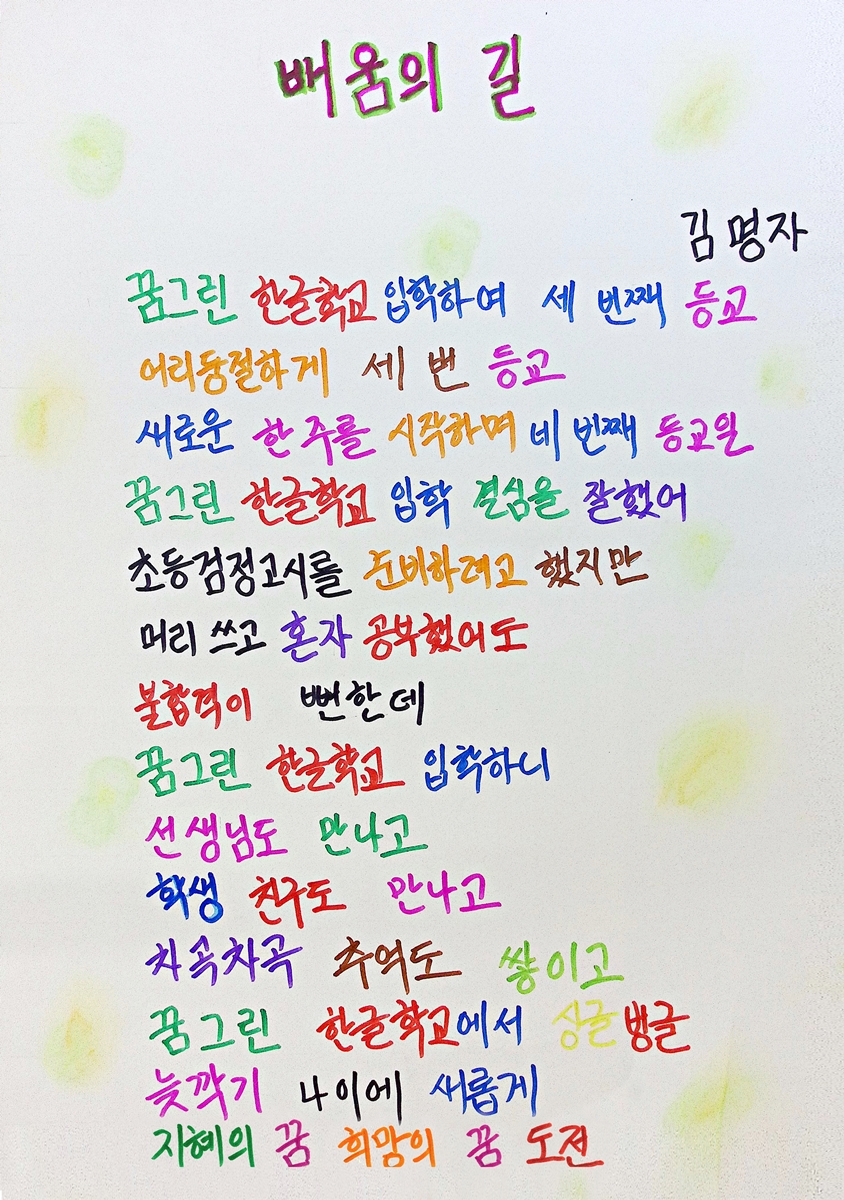 배움의 길
김명자
꿈그린 한글학교 입학하여 세 번째 등교
어리둥절하게 세 번 등교
새로운 한 주를 시작하며 네 번째 등교일
꿈그린 한글학교 입학 결심을 잘했어
초등검정고시를 준비하려고 했지만
머리 쓰고 혼자 공부했어도
불합격이 뻔한데
꿈그린 한글학교 입학하니
선생님도 만나고
학생 친구도 만나고
차곡차곡 추억도 쌓이고
꿈그린 한글학교에서 싱글벙글
늦깍기 나이에 새롭게
지혜의 꿈 희망의 꿈 도전